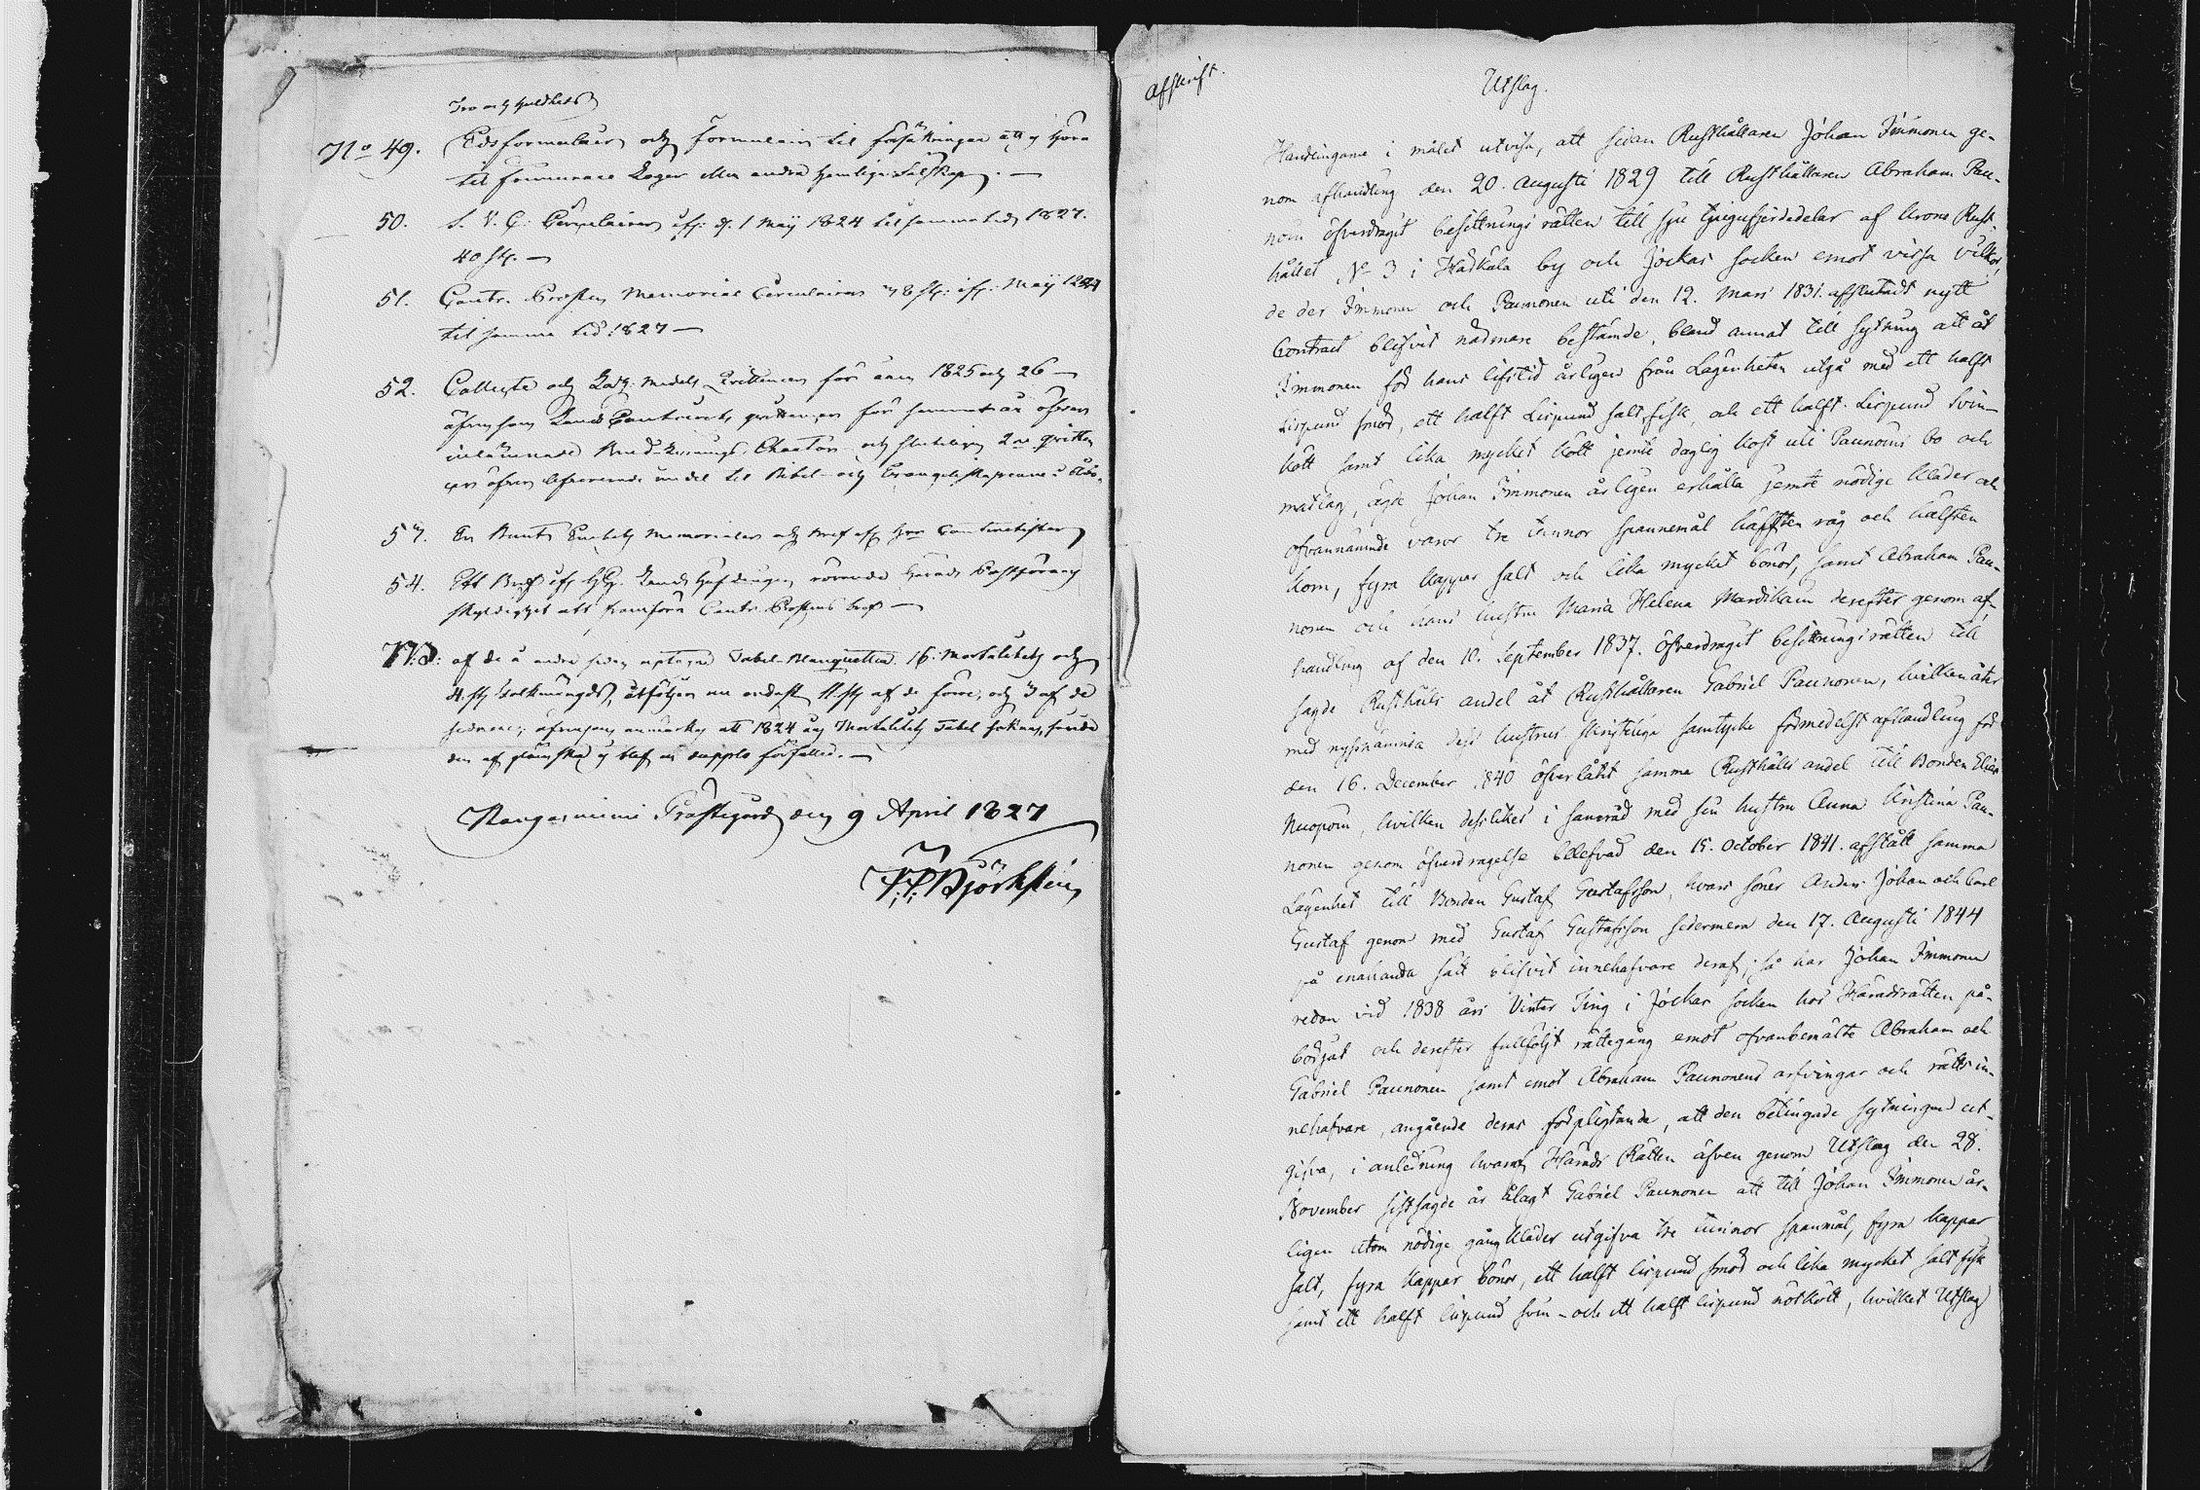 Tro och Huldhets
No 49. Edsformulairer och formulairer til försäkringar att ej höra
til Frimurare Loger eller andra hemliga Sälskap. —
50. S. V. C. Circulairer ifr. d. 1 Maij 1824 til samma tid 1827.
40 st. —
51. Contr. Prostens Memorial Circulairer st. ifr. Maij 1824
til samma tid 1827 —
52. Collecte och quittencer för åren 1825 och 26 —
äfvensom Contracts quittencer för samma år
inlämnade och 2ne quitten
cer öfver medel til Bibel- och Evangeliska i Åbo.
57. En Bunt Enskilta Memorialer och Bref ifr.
54. Ett Bref ifr. Lands Höfdingen rörande Härads
skyldighet att framföra Contr. Prostens bref —
NB: af de å andra sidan Tabel-Blanquetter 16. Mortalitets och
4. st. Folkmängds, åtföljer nu endast 11. st. af de förre, och 3 af de
sednare; äfvensom anmärkes att 1824 års Mortalitets Tabel saknas,
—
Kangasniemi Prästegård den 9 April 1827
Björkstén
Afskrift.
Utslag.
Handlingarne i målet utvisa, att sedan Rusthållaren Johan Immonen ge-
nom afhandling den 20. Augusti 1829 till Rusthållaren Abraham Pau-
nonen öfverdragit besittningsrätten till sju tjugufjerdedelar af Krono Rust-
hållet No 3 i Haskala by och Jockas socken emot vissa vilkor,
de der Immonen och Paunonen uti den 12. Mars 1831. afslutadt nytt
Contract blifvit närmare bestämde, bland annat till sytning att åt
Immonen för hans lifstid årligen från Lägenheten utgå med ett halft
Lispund smör, ett halft Lispund salt fisk, och ett halft Lispund svin-
kött samt lika mycket kött jemte daglig kost uti Paunonens bo och
matlag, ägde Johan Immonen årligen erhålla jemte nödige kläder och
ofvannämnde varor tre tunnor spannemål hälften råg och hälften
korn, fyra kappar salt och lika mycket bönor, samt Abraham Pau-
nonen och hans hustru Maria Helena Mardikain derefter genom af-
handling af den 10. September 1837. öfverdragit besittningsrätten till
sagde Rusthålls andel åt Rusthållaren Gabriel Paunonen, hvilken åter
med nyssnämnda dess hustrus skriftliga samtycke förmedelst afhandling för
den 16. December 1840 öfverlåtit samma Rusthålls andel till Bonden Elias
Kuoponi, hvilken dess likes i samråd med sin hustru Anna Kristina Pau-
nonen genom öfverdragelse bref den 15. October 1841. afstått samma
Lägenhet till Bonden Gustaf Gustafsson, hvars söner Anders Johan och Carl
Gustaf genom med Gustaf Gustafsson sedermera den 17. Augusti 1844
på enahanda sätt blifvit innehafvare deraf; så har Johan Immonen
redan vid 1838 års Vinter Ting i Jockas socken hos Häradsrätten på-
börjat och derefter fullföljt rättegång emot ofvanbemälte Abraham och
Gabriel Paunonen samt emot Abraham Paunonens arfvingar och rätts in-
nehafvare, angående deras förpligtande, att den betingade sytningen ut-
gifva, i anledning hvaraf Härads Rätten äfven genom Utslag den 28.
November sistsagde år ålagt Gabriel Paunonen att till Johan Immonen år-
ligen utom nödige gångkläder utgifva tre tunnor spanmål, fyra kappar
salt, fyra kappar bönor, ett halft lispund smör och lika mycket salt fisk
samt ett halft lispund svin- och ett halft lispund nötkött, hvilket Utslag